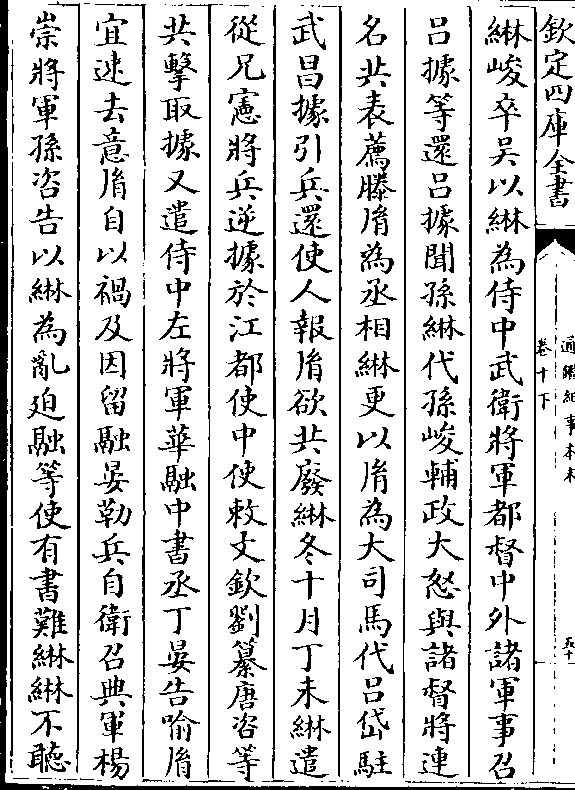 欽定四庫全書
通鑑紀事本末
卷十下
五十
綝峻卒吳以綝為侍中武衛將軍都督中外諸軍事召
吕據等還吕據聞孫綝代孫峻輔政大怒與諸督將連
名共表薦滕𦙍為丞相綝更以𦙍為大司馬代吕岱駐
武昌據引兵還使人報𦙍欲共廢綝冬十月丁未綝遣
從兄憲將兵逆據於江都使中使敕文欽劉纂唐咨等
共擊取據又遣侍中左將軍華融中書丞丁晏告喻𦙍
宜速去意𦙍自以禍及因留融晏勒兵自衛召典軍楊
崇將軍孫咨告以綝為亂迫融等使有書難綝綝不聽